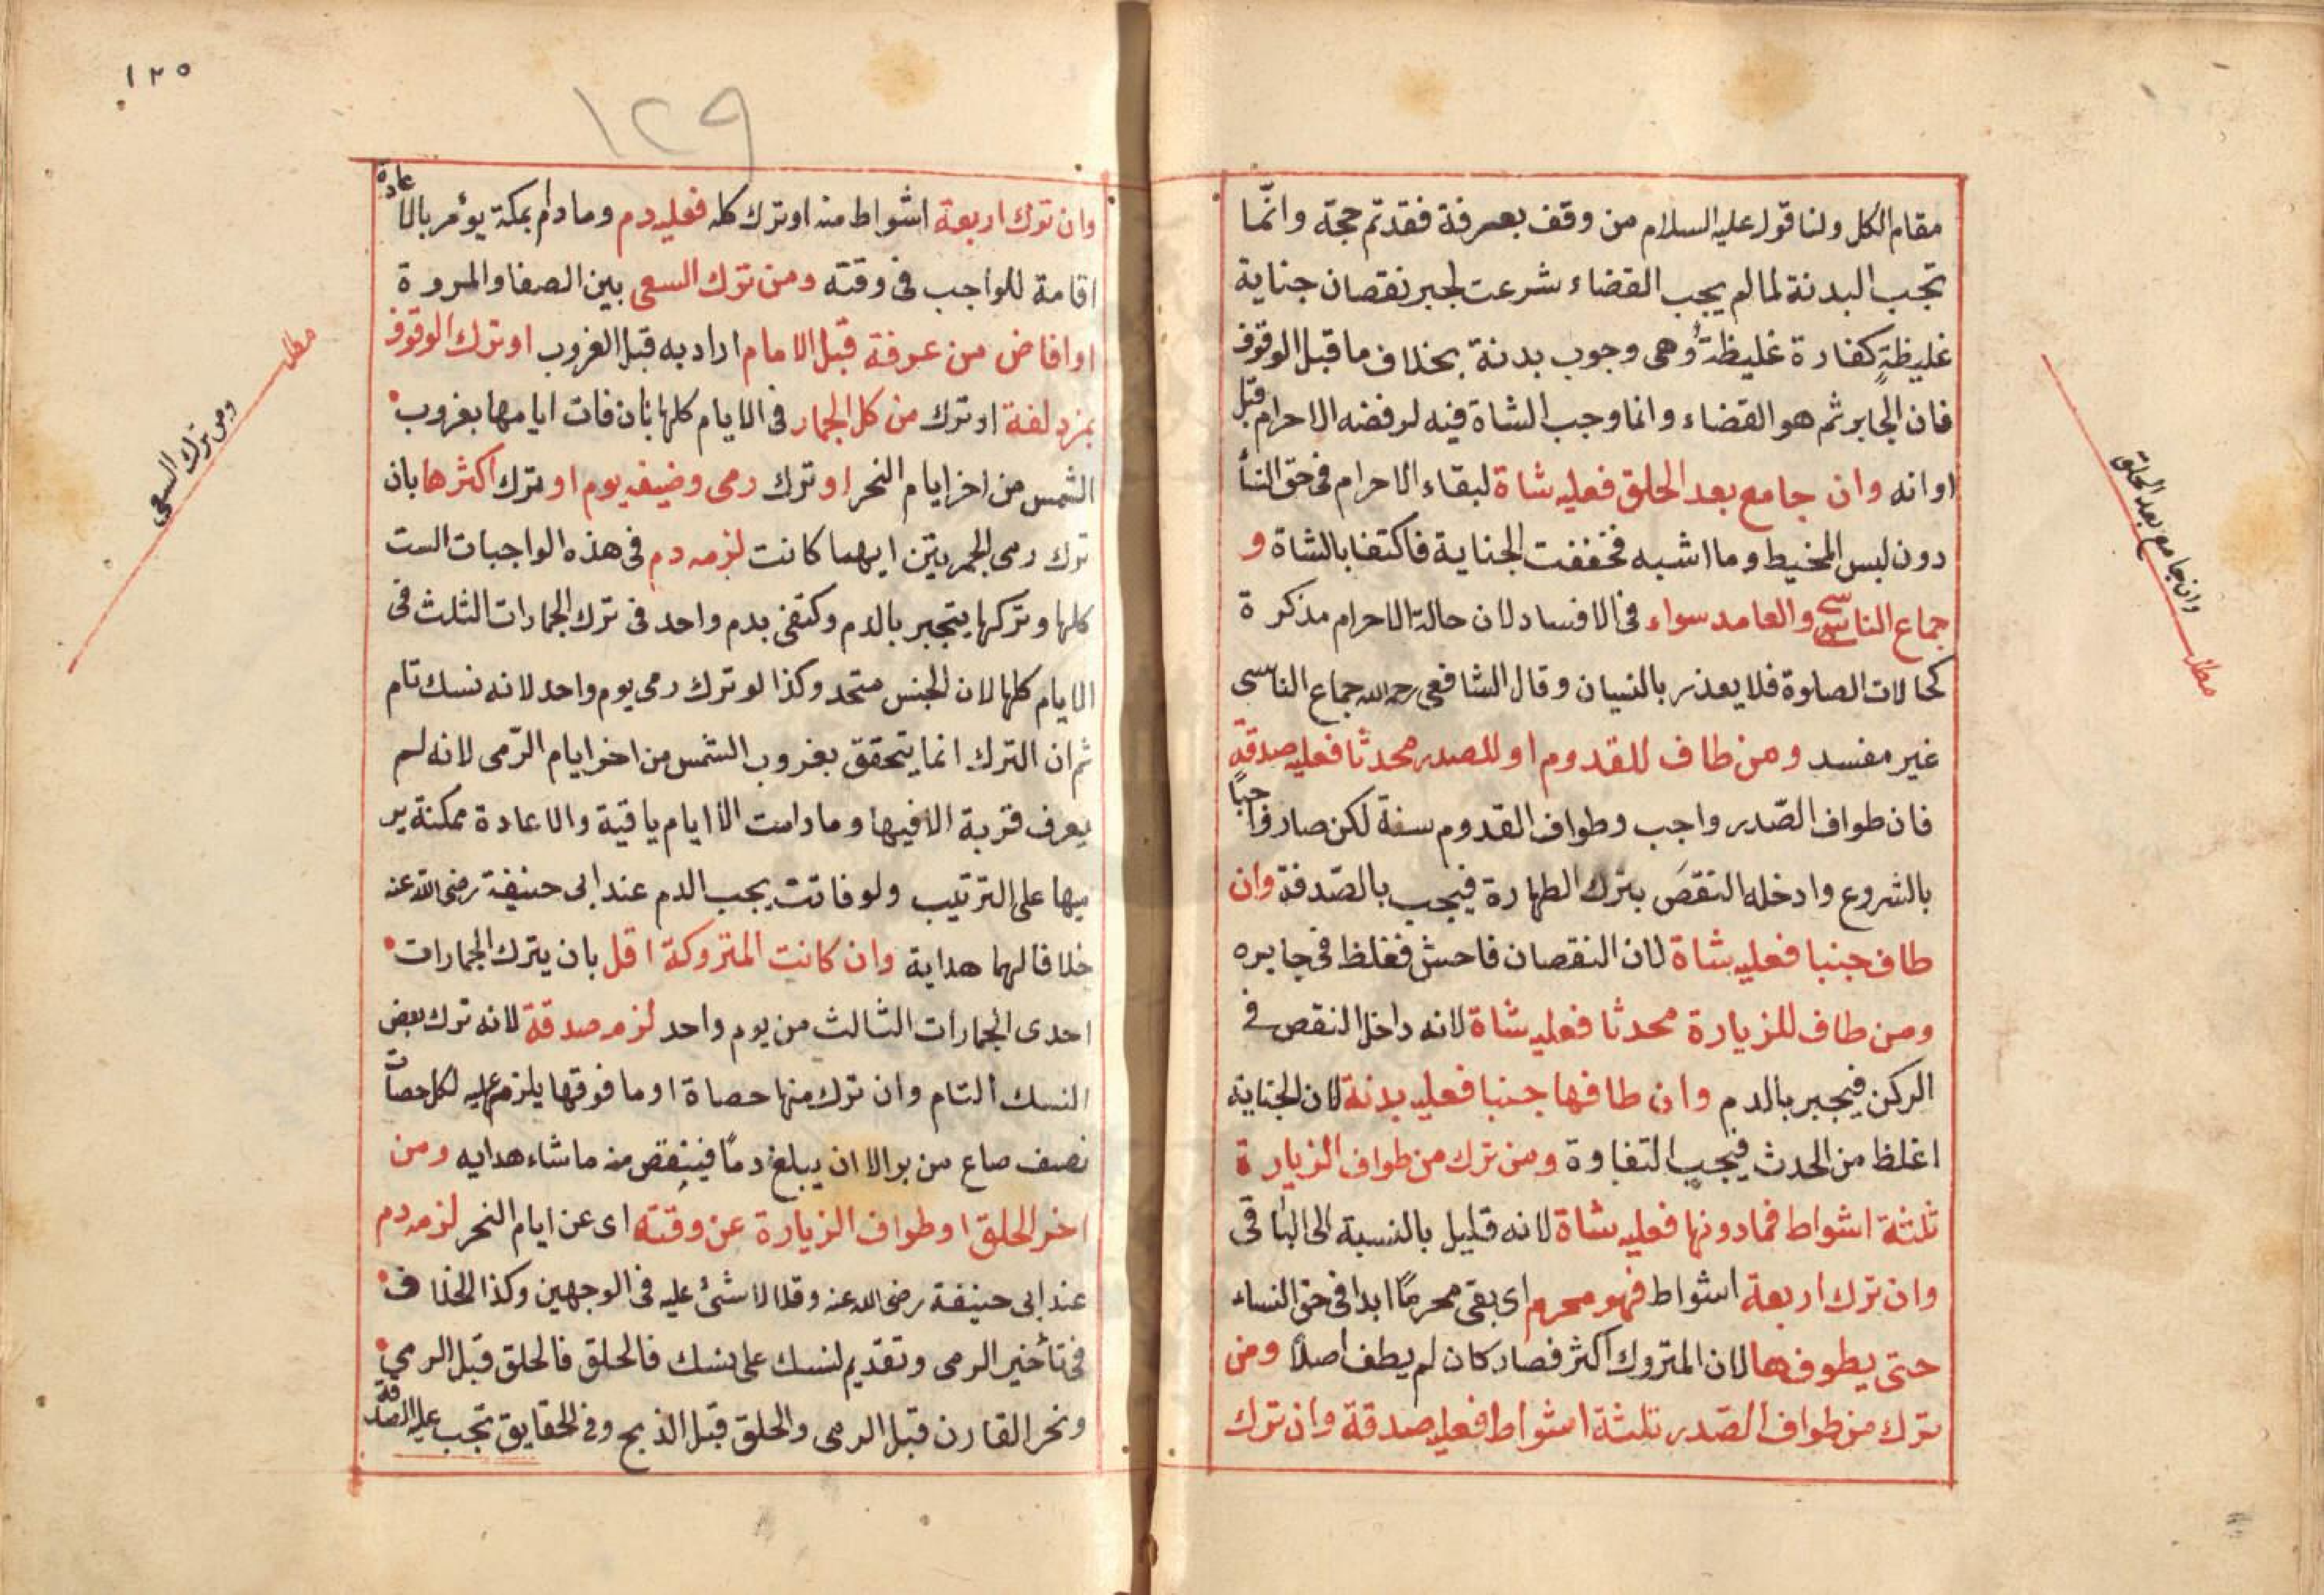 مقام الكل ولنا قوله عليه السلام من وقف بعرفة فقد تم حجة وانّما
تجب البدنة لما لم يجب القضاء شرعت لجبر نقصان جناية
غليظةٍ كفارة غليظةٌ وهى وجوب بدنة بخلاف ما قبل الوقوف
فان الجابر ثم هو القضاء وانما وجب الشاة فيه لرفضه الاحرام قبل
اوانه وان جامع بعد الحلق فعليه شاة لبقاء الاحرام فى حق النسأ
دون لبس المخيط وما اشبه فخففت الجناية فاكتفا بالشاة و
جماع الناسى والعامد سواء فى الافساد لان حالة الاحرام مذكرة
كحالات الصلوة فلا يعذر بالنسيان وقال الشافعى رحمه الله جماع الناسى
غير مفسد ومن طاف للقدوم او للصدر محدثا فعليه صدقة
فان طواف الصّدر واجب وطواف القدوم سنة لكن صار واجبًا
بالشروع وادخله النقصَ بترك الطهارة فيجب بالصّدقة وان
طاف جنبا فعليه شاة لان النقصان فاحش فغلظ فى جابره
ومن طاف للزيارة محدثا فعليه شاة لانه داخل النقص فى
الركن فيجبر بالدم وان طافها جنبا فعليه بدنة لان الجناية
اغلظ من الحدث فيجب التفاوة ومن ترك من طواف الزيارة
ثلثة اشواط فمادونها فعليه شاة لانه قليل بالنسبة الى الباقى
وان ترك اربعة اشواط فهو محرم اى بقى محرمًا ابدا فى حق النساء
حتى يطوفها لان المتروك اكثر فصار كان لم يطف اصلًا ومن
ترك من طواف الصّدر ثلثة اشواط فعليه صدقة وان ترك
وان جامع بعد الحلق
مطلب
١٢٥
١٢٩
وان ترك اربعة اشواط منه او ترك كله فعليه دم ومادام بمكة يؤمر بالاعادة
اقامة للواجب فى وقته ومن ترك السعى بين الصفا والمروة
او افاض من عرفة قبل الامام اراد به قبل الغروب او ترك الوقوف
بمزدلفة او ترك من كل الجمار فى الايام كلها بان فات ايامها بغروب
الشمس من اخر ايام النحر او ترك رمى وضيفه يوم او ترك اكثرها بان
ترك رمى الجمرتين ايهما كانت لزمه دم فى هذه الواجبات الست
كلها وتركها يتجبر بالدم وكتفى بدم واحد فى ترك الجمارات الثلث فى
الايام كلها لان الجنس متحد وكذا لو ترك رمى يوم واحد لانه نسك تام
ثم ان الترك انما يتحقق بغروب الشمس من اخر ايام الرّمى لانه لم
يعرف قربة الا فيها وما دامت الاايام باقية والاعادة ممكنة ير
ميها على الترتيب ولو فاتت يجب الدم عند ابى حنيفة رضى الله عنه
خلافا لهما هداية وان كانت المتروكة اقل بان يترك الجمارات
احدى الجمارات الثالث من يوم واحد لزمه صدقة لانه ترك بعض
النسك التام وان ترك منها حصاة او ما فوقها يلزم عليه لكل حصات
نصف صاع من بر الا ان يبلغ دمًا فينقص منه ما شاء هدايه ومن
اخر الحلق او طواف الزيارة عن وقته اى عن ايام النحر لزمه دم
عند ابى حنيفة رضى الله عنه وقالا لا شئ عليه فى الوجهين وكذا الخلاف
فى تأخير الرمى وتقديم لنسك على نسك فالحلق فالحلق قبل الرمى
ونحر القارن قبل الرمى والحلق قبل الذبح وفى الحقايق تجب عليه الصدقة
مطلب
ومن ترك السعى